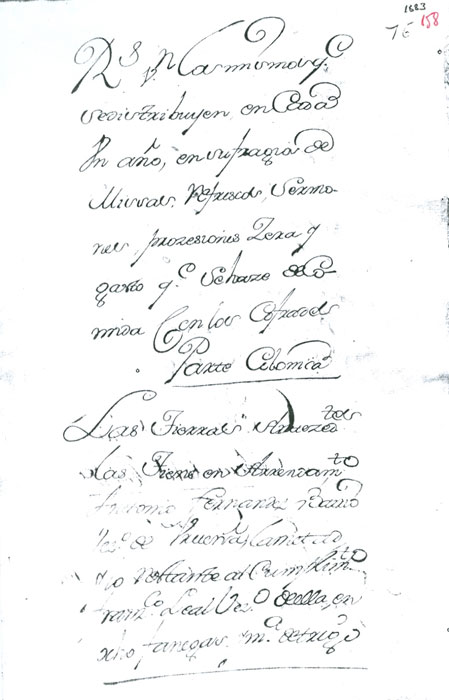 1683
76 158
R.s p.r las mismas q.e
se distribuyen en Cada
Un año, en sufragio de
Missas, Refrescos, Sermo-
nes, prozesiones Zera y
gasto q.e Se haze de Co-
mida Con los Cofrades
Parte
Las Tierras
las Tiene en Arrendam.to
Antonio Fernandez
vez.o de Huerva, la mitad
Y lo restante al Cumplim.to
Fran.co Leal Vez.o de ella, en
ocho fanegas m.a de trigo